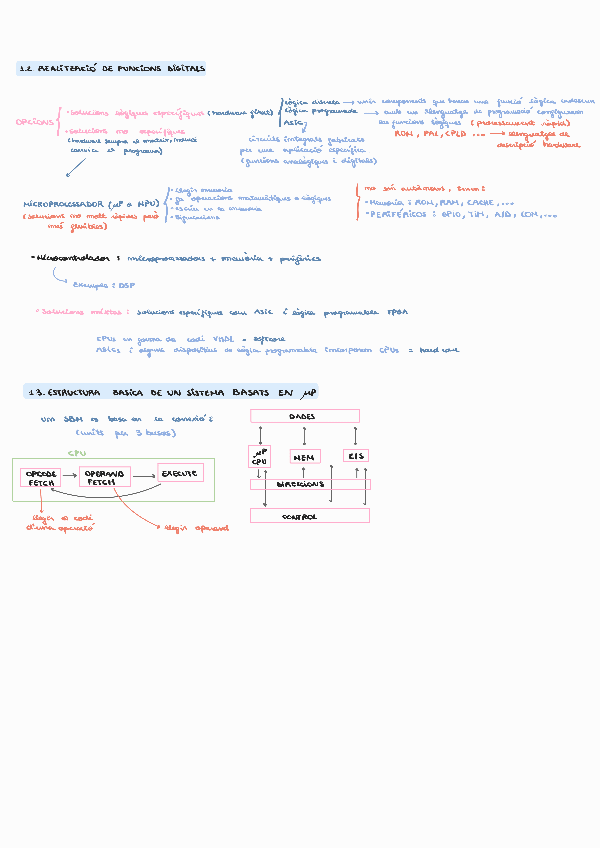 1.2. REALITZACIÓ DE FUNCIONS DIGITALS
OPCIONS
• Solucions lògiques específiques (hardware fixat)
lògica discreta → unir components que tenen una funció lògica
lògica programada → amb un llenguatge de programació configurem
les funcions lògiques (processament ràpid)
ASIC:
• Solucions no específiques
(hardware sempre el mateix, només
canvia el programa)
circuits integrats fabricats
per una aplicació específica
(funcions analògiques i digitals)
ROM, PAL, CPLD ... → llenguatges de
descripció hardware
MICROPROCESSADOR (μP o MPU)
(solucions no molt ràpides però
més flexibles)
• llegir memòria
• fa operacions matemàtiques o lògiques
• escriu en la memòria
• Bifurcacions
no són autònoms, tenen:
• Memòria: ROM, RAM, CACHE, ...
• PERIFÈRICS: GPIO, TIM, A/D, COM, ...
• Microcontrolador: microprocessadors + memòria + perifèrics
Exemple: DSP
• Solucions mixtes: solucions específiques com ASIC i lògica programable FPGA
CPUs en forma de codi VHDL = software
ASICs i alguns dispositius de lògica programable incorporen CPUs = hard core
1.3. ESTRUCTURA BASICA DE UN SISTEMA BASATS EN μP
Un SBM es basa en la connexió:
(units per 3 busos)
CPU
OPCODE
FETCH
OPERAND
FETCH
EXECUTE
llegir el codi
d'una operació
llegir operand
DADES
μP
CPU
MEM
E/S
DIRECCIONS
CONTROL